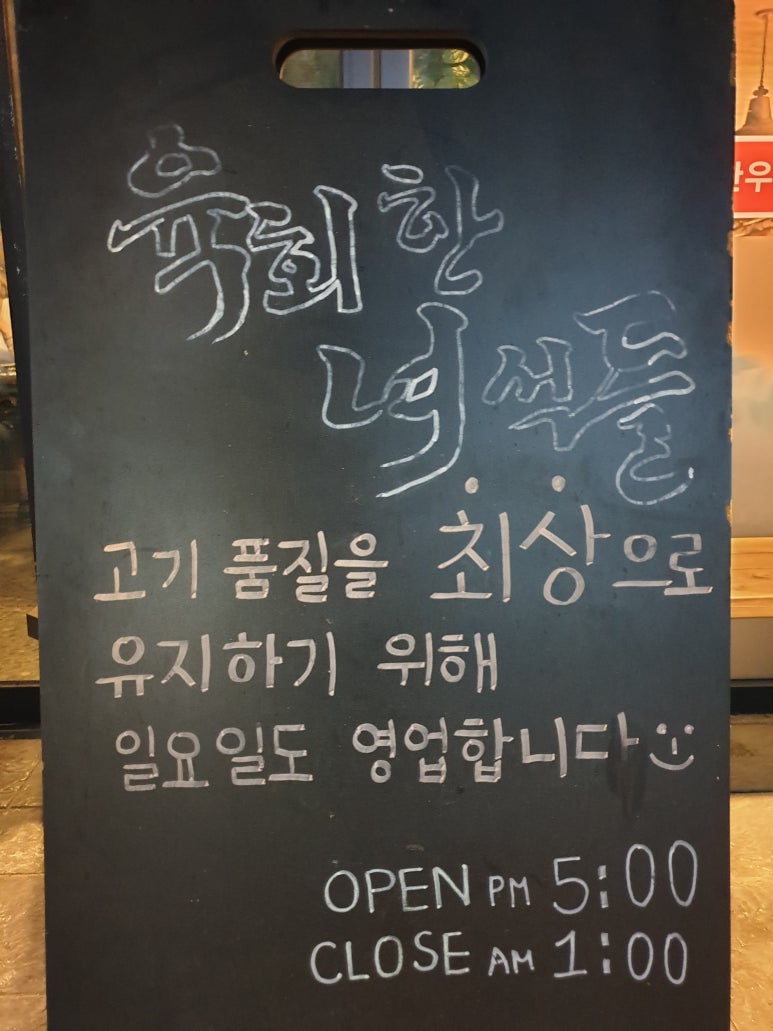 육회한
녀석들
고기 품질을 최상으로
유지하기 위해
일요일도 영업합니다
OPEN PM 5:00
CLOSE AM 1:00